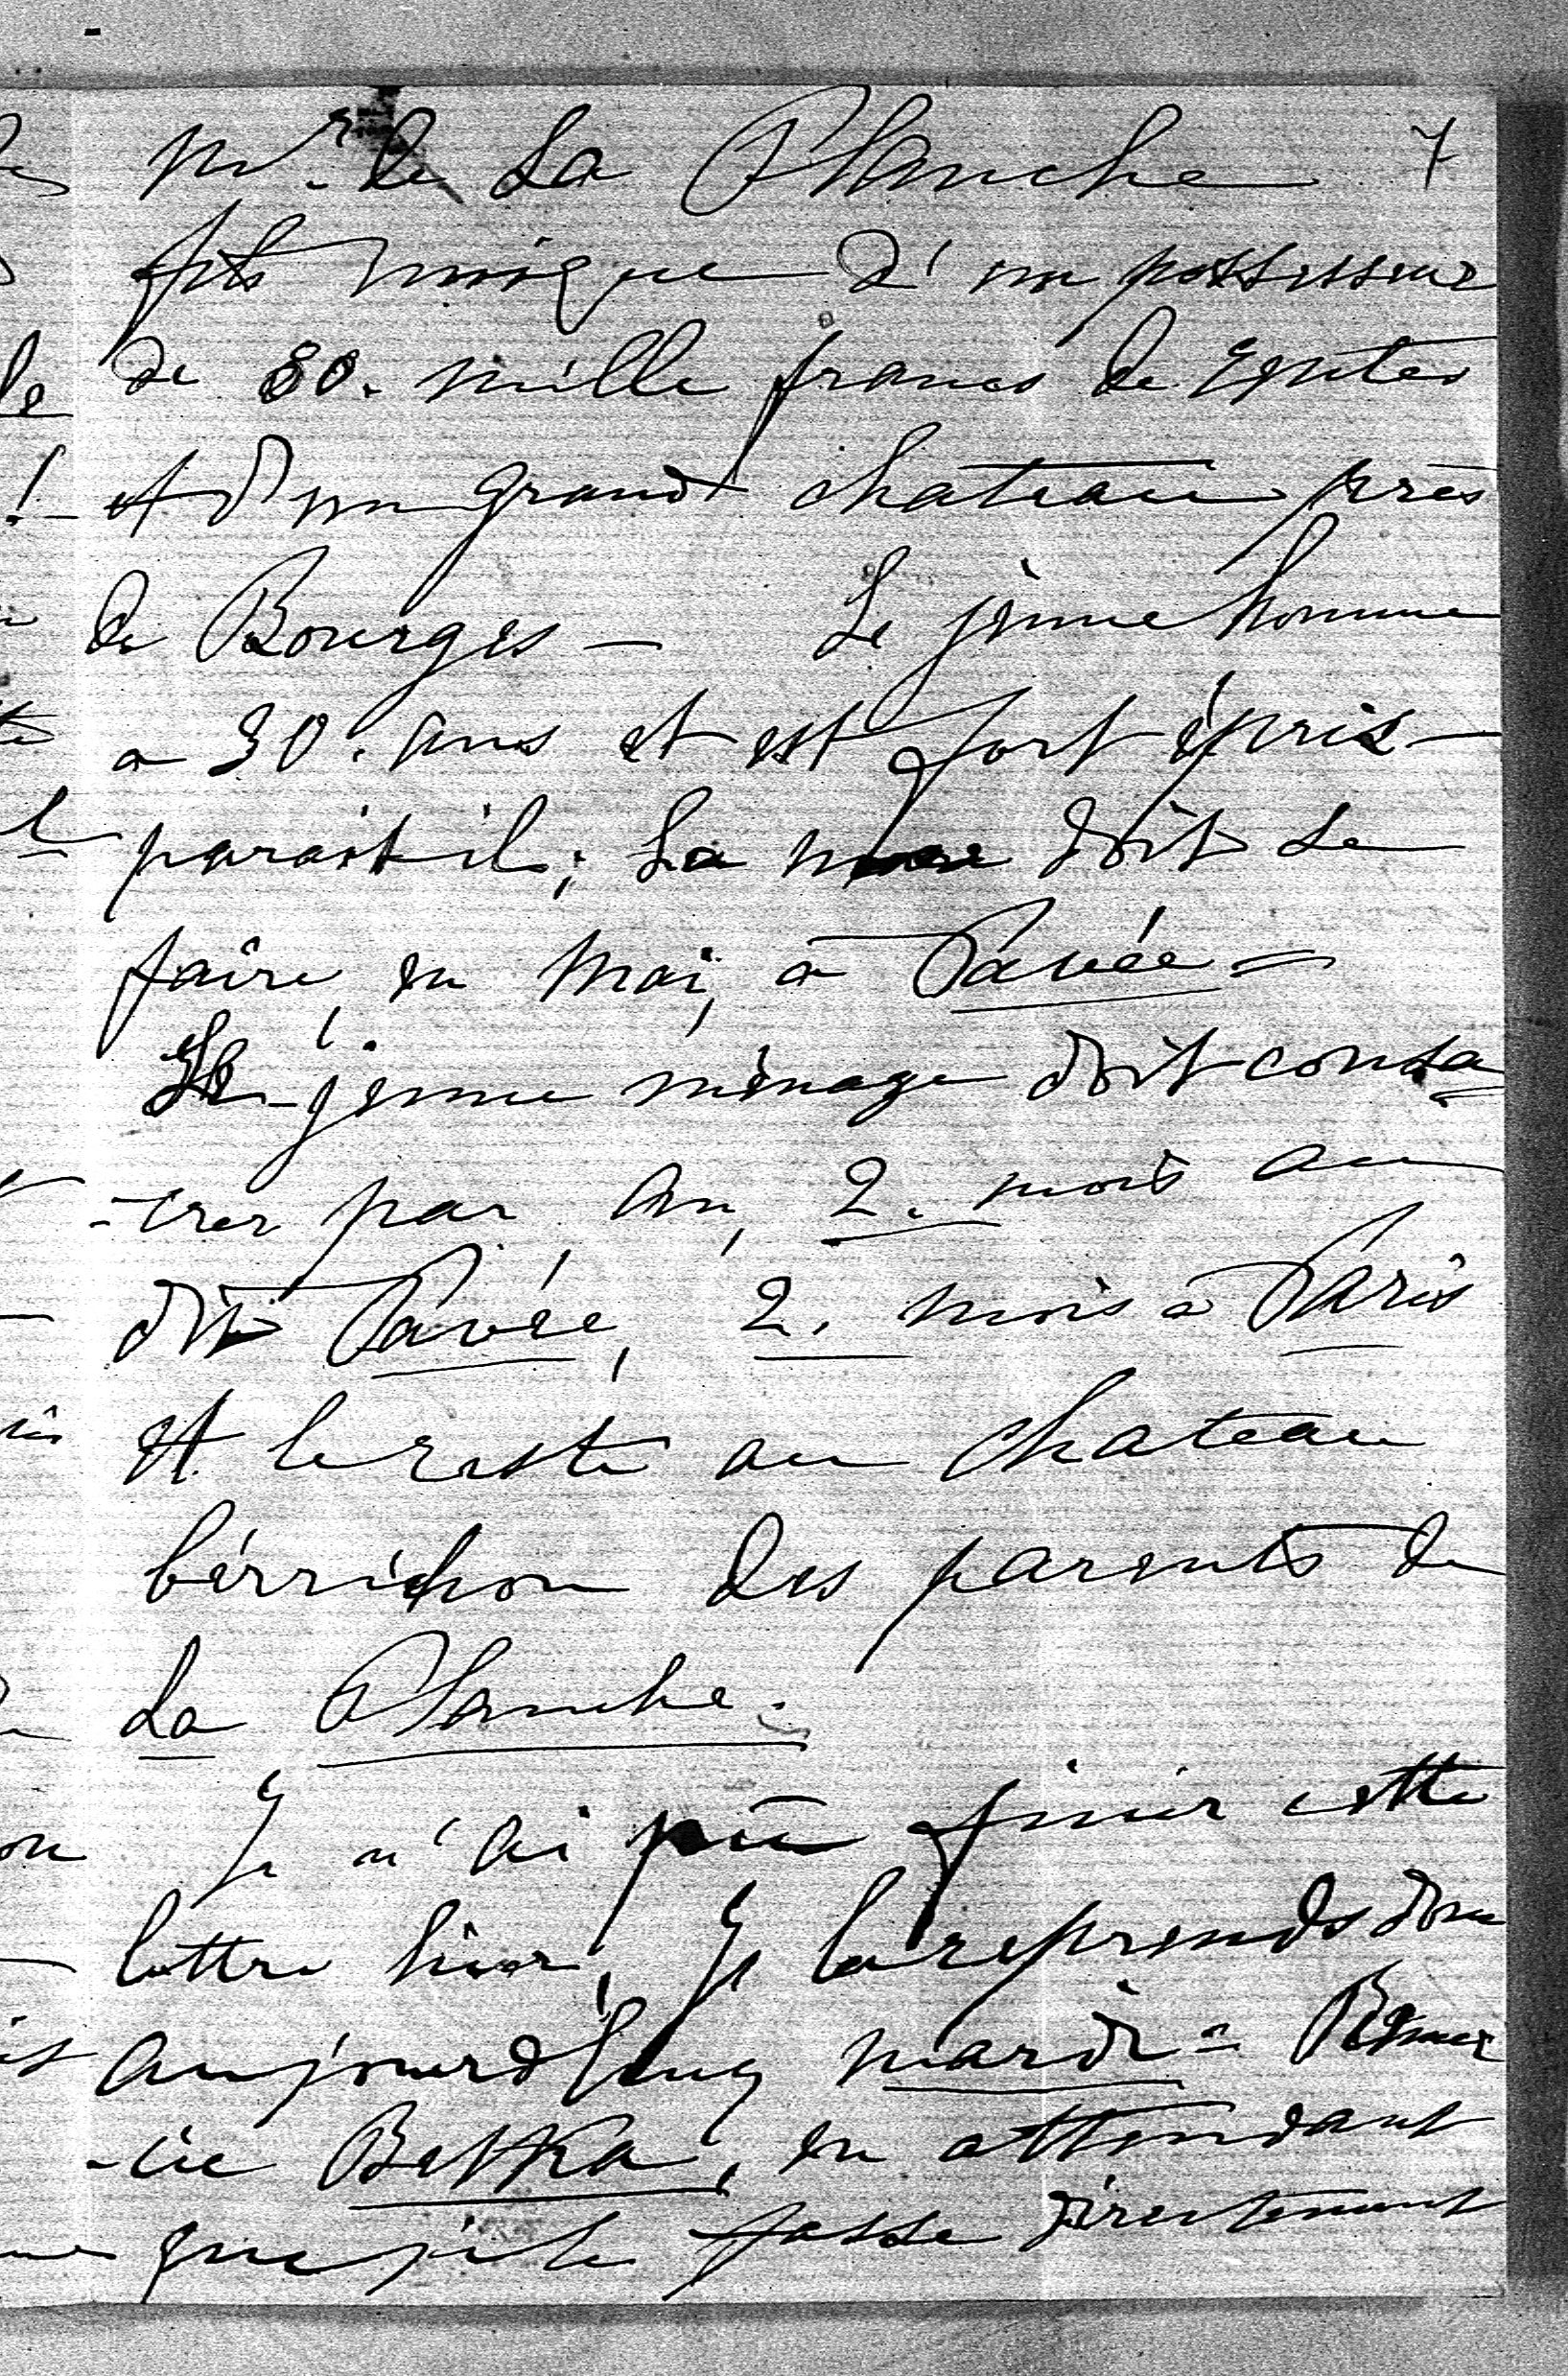 Mr. de La Planche 7
fils unique d'un possesseur
de 80. mille francs de rentes
et d'un grand chateau près
de Bourges — Le jeune homme
a 30. ans et est fort épris —
parait-il; La noce doit se
faire, en Mai, à Pavée =
Le jeune ménage doit consa=
-crer par an, 2. mois au
dit Pavée, 2. mois à Paris
et le reste au chateau
bérrichon des parents de
La Planche.
Je n'ai pû finir cette
lettre hier, Je la reprends donc
aujourd'huy mardi = Remer
-cie Betka, en attendant
que je le fasse directement